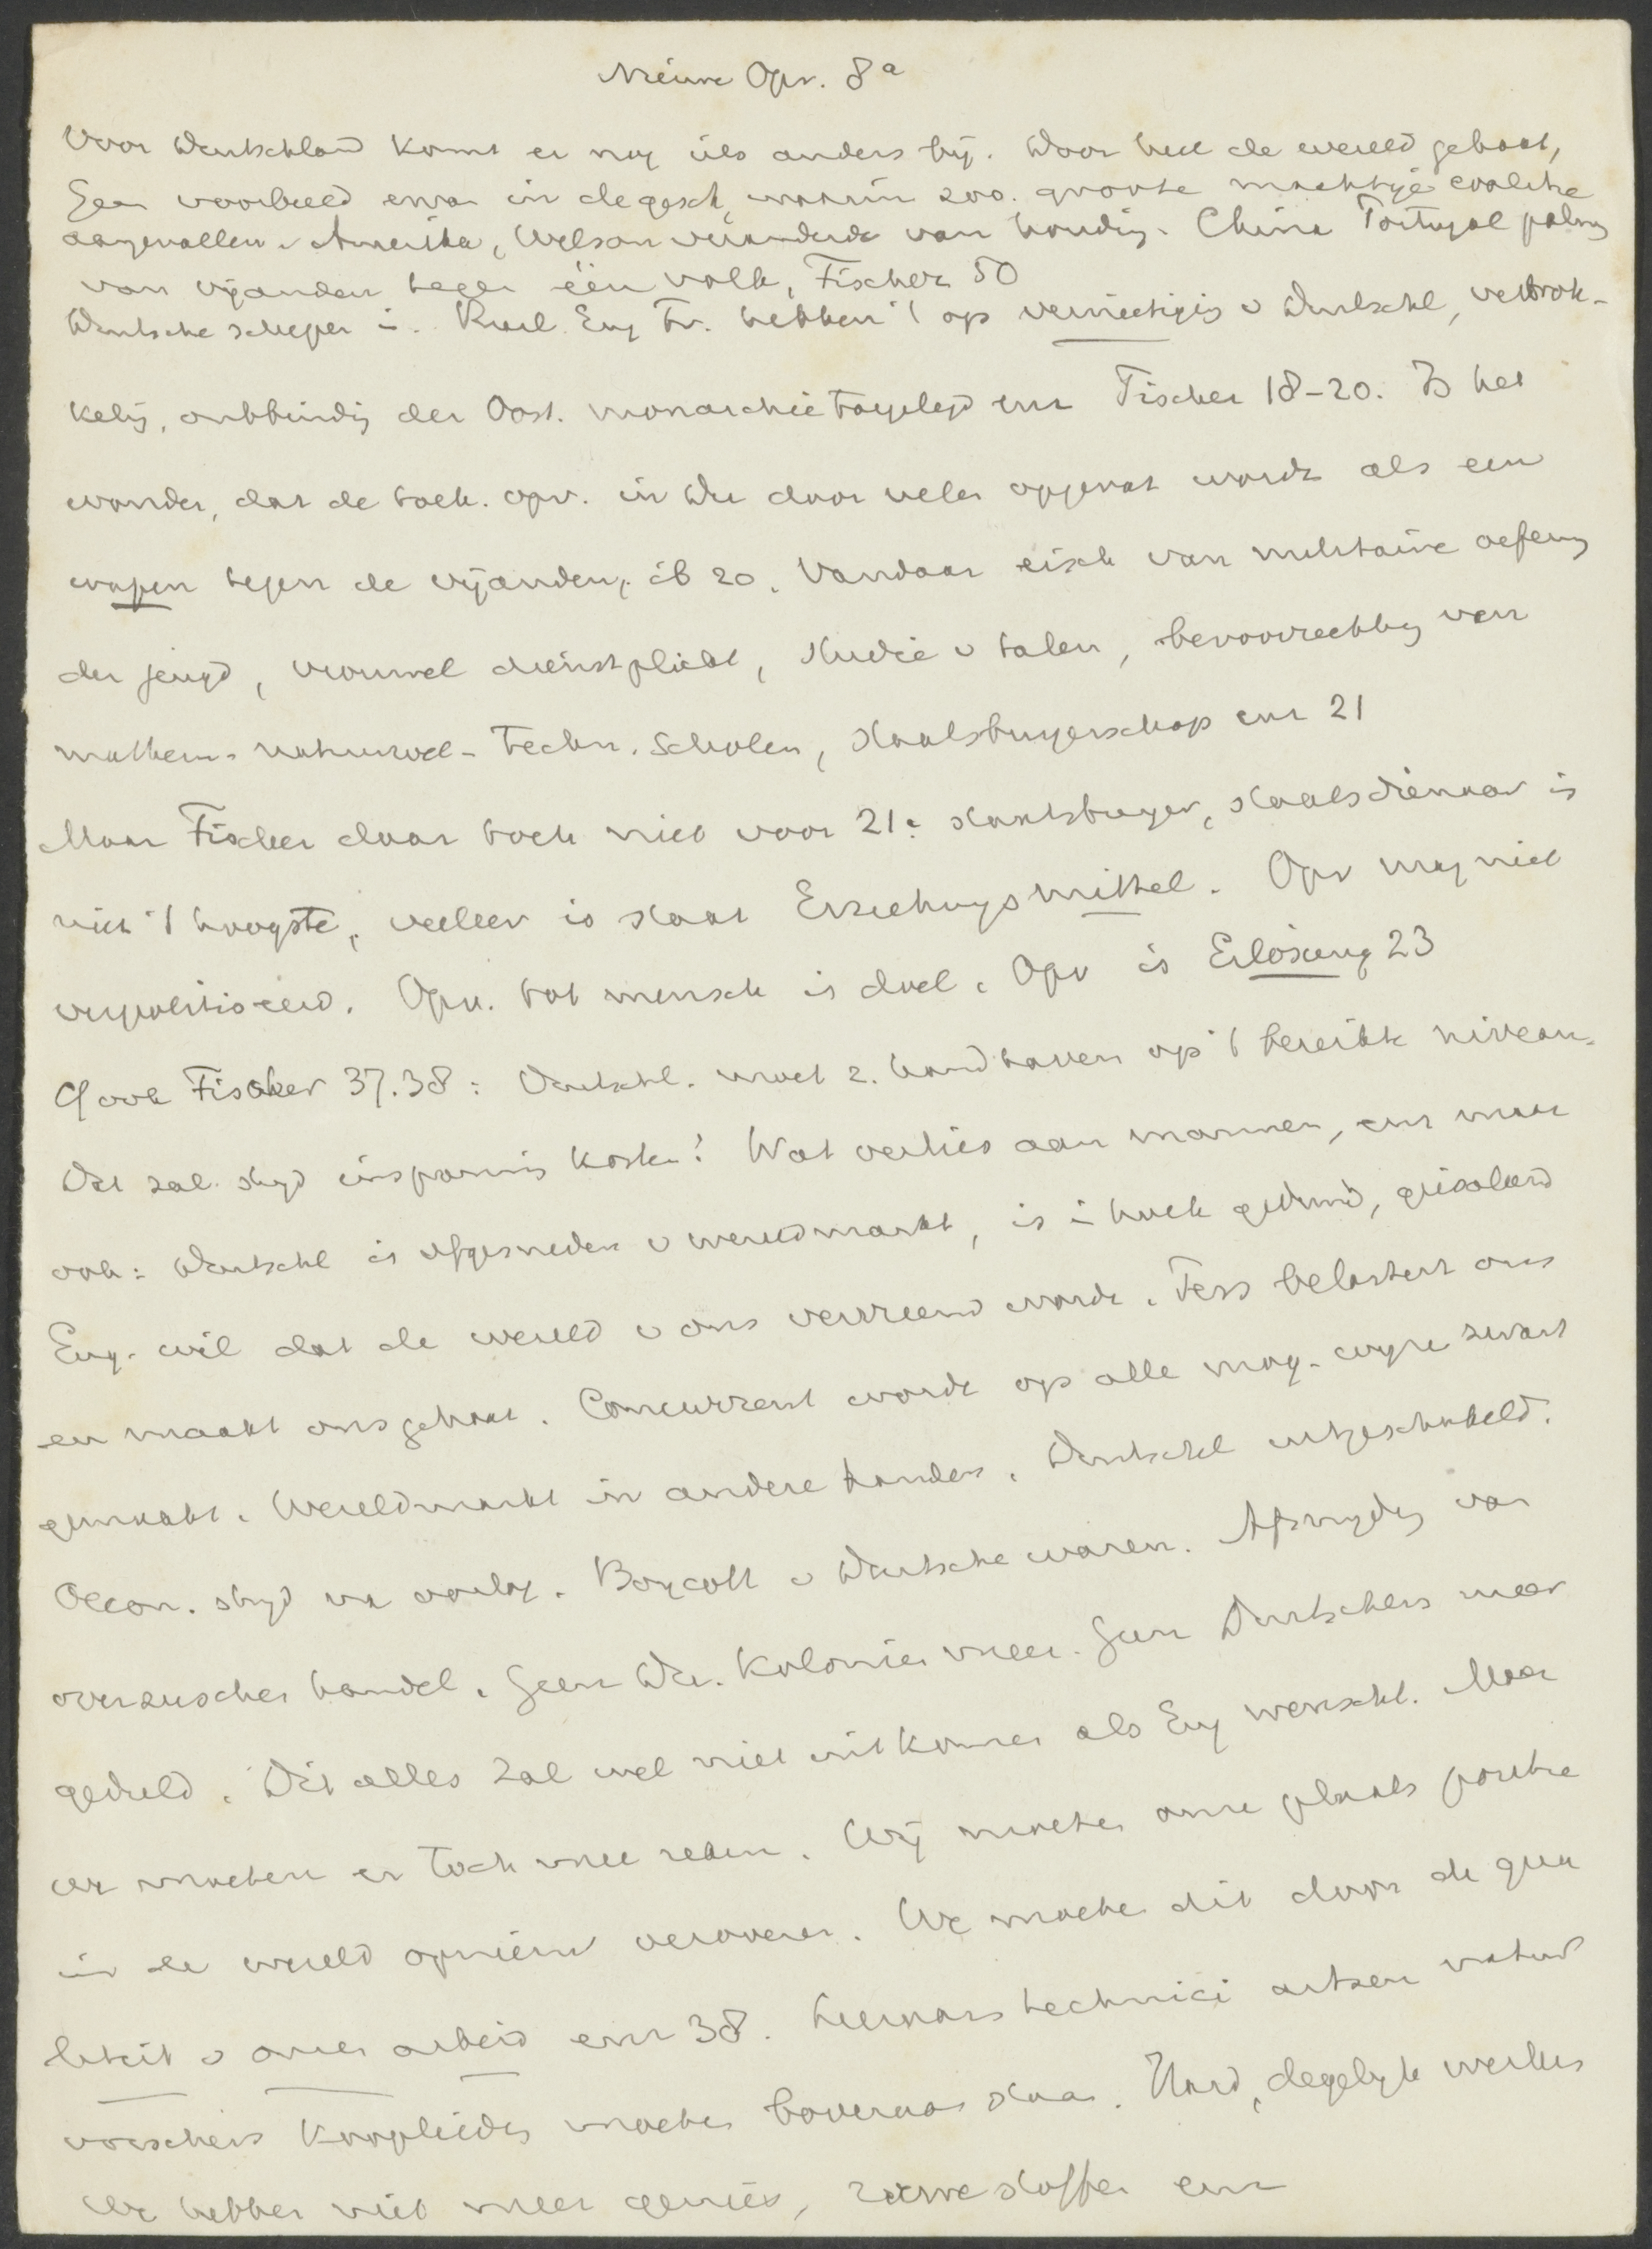 Nieuwe Opv. 8a
Voor Duitschland komt er nog iets anders bij. Door heel de wereld gehaat,
Geen voorbeeld ervan in de gesch, waarin zoo. groote machtige coalitie
aangevallen v Amerika, Wilson veranderde van houding. China Portugal
van vijanden tegen één volk, Fischer 50
Duitsche schepen in. Rusl. Eng Fr. hebben 't op vernietiging v Duitschl, verbrok-
keling, ontbinding der Oost. monarchie toegelegd enz Fischer 18-20. Is het
wonder, dat de toek. opv. in Du door velen opgevat wordt als een
wapen tegen de vijanden, ib 20. Vandaar eisch van militaire oefening
der jeugd, vrouwel dienstplicht, studie v talen, bevoorrechting van
mathem. natuurwet- techn. scholen, staatsburgerschap enz 21
Maar Fischer daar toch niet voor 21. staatsburger, staatsdienaar is
niet 't hoogste, veeleer is staat Erziehungsmittel. Opv mag niet
verpolitiseerd. Opv. tot mensch is doel. Opv is Erlösung 23
Cf ook Fischer 37.38: Duitschl. moet z. handhaven op 't bereikte niveau.
Dat zal strijd inspanning kosten! Wat verlies aan mannen, enz maar
ook: Duitschl is afgesneden v wereldmarkt, is in hoek geduwd, geisoleerd
Eng. wil dat de wereld v ons vervreemd worde. Pers belastert ons
en maakt ons gehaat. Concurrent wordt op alle mog. wijze zwart
gemaakt. Wereldmarkt in andere handen. Duitschl uitgeschakeld.
Oecon. strijd na oorlog. Boycott v Duitsche waren. Afsnijding van
overzeeschen handel. Geen Du. Kolonien meer. Geen Duitschers meer
geduld. Dit alles zal wel niet uitkomen als Eng wenscht. Maar
we moeten er toch mee reken. Wij moeten onze plaats positie
in de wereld opnieuw veroveren. We moeten dit door de qua
liteit v onzen arbeid enz 38. Leeraars technici artsen natuur
vorschers kooplieden moeten bovenaan staan. Hard, degelijk werken
We hebben niet meer genies, ruwe stoffen enz